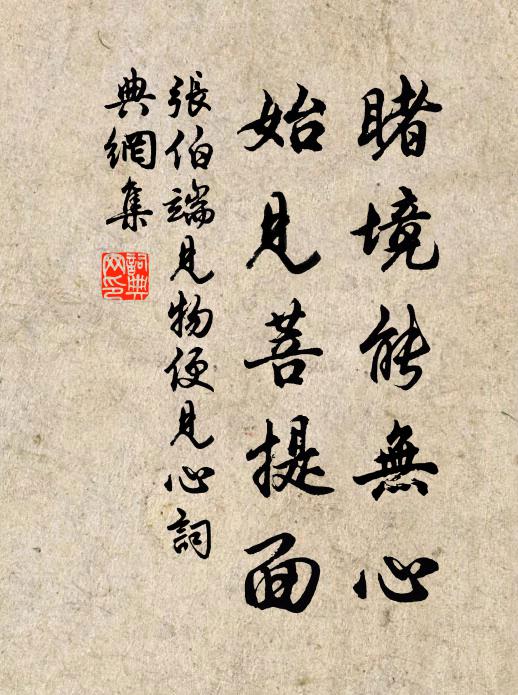 睹境能無心
始見菩提面
張伯端見物便見心詞
典網集
詞典網印